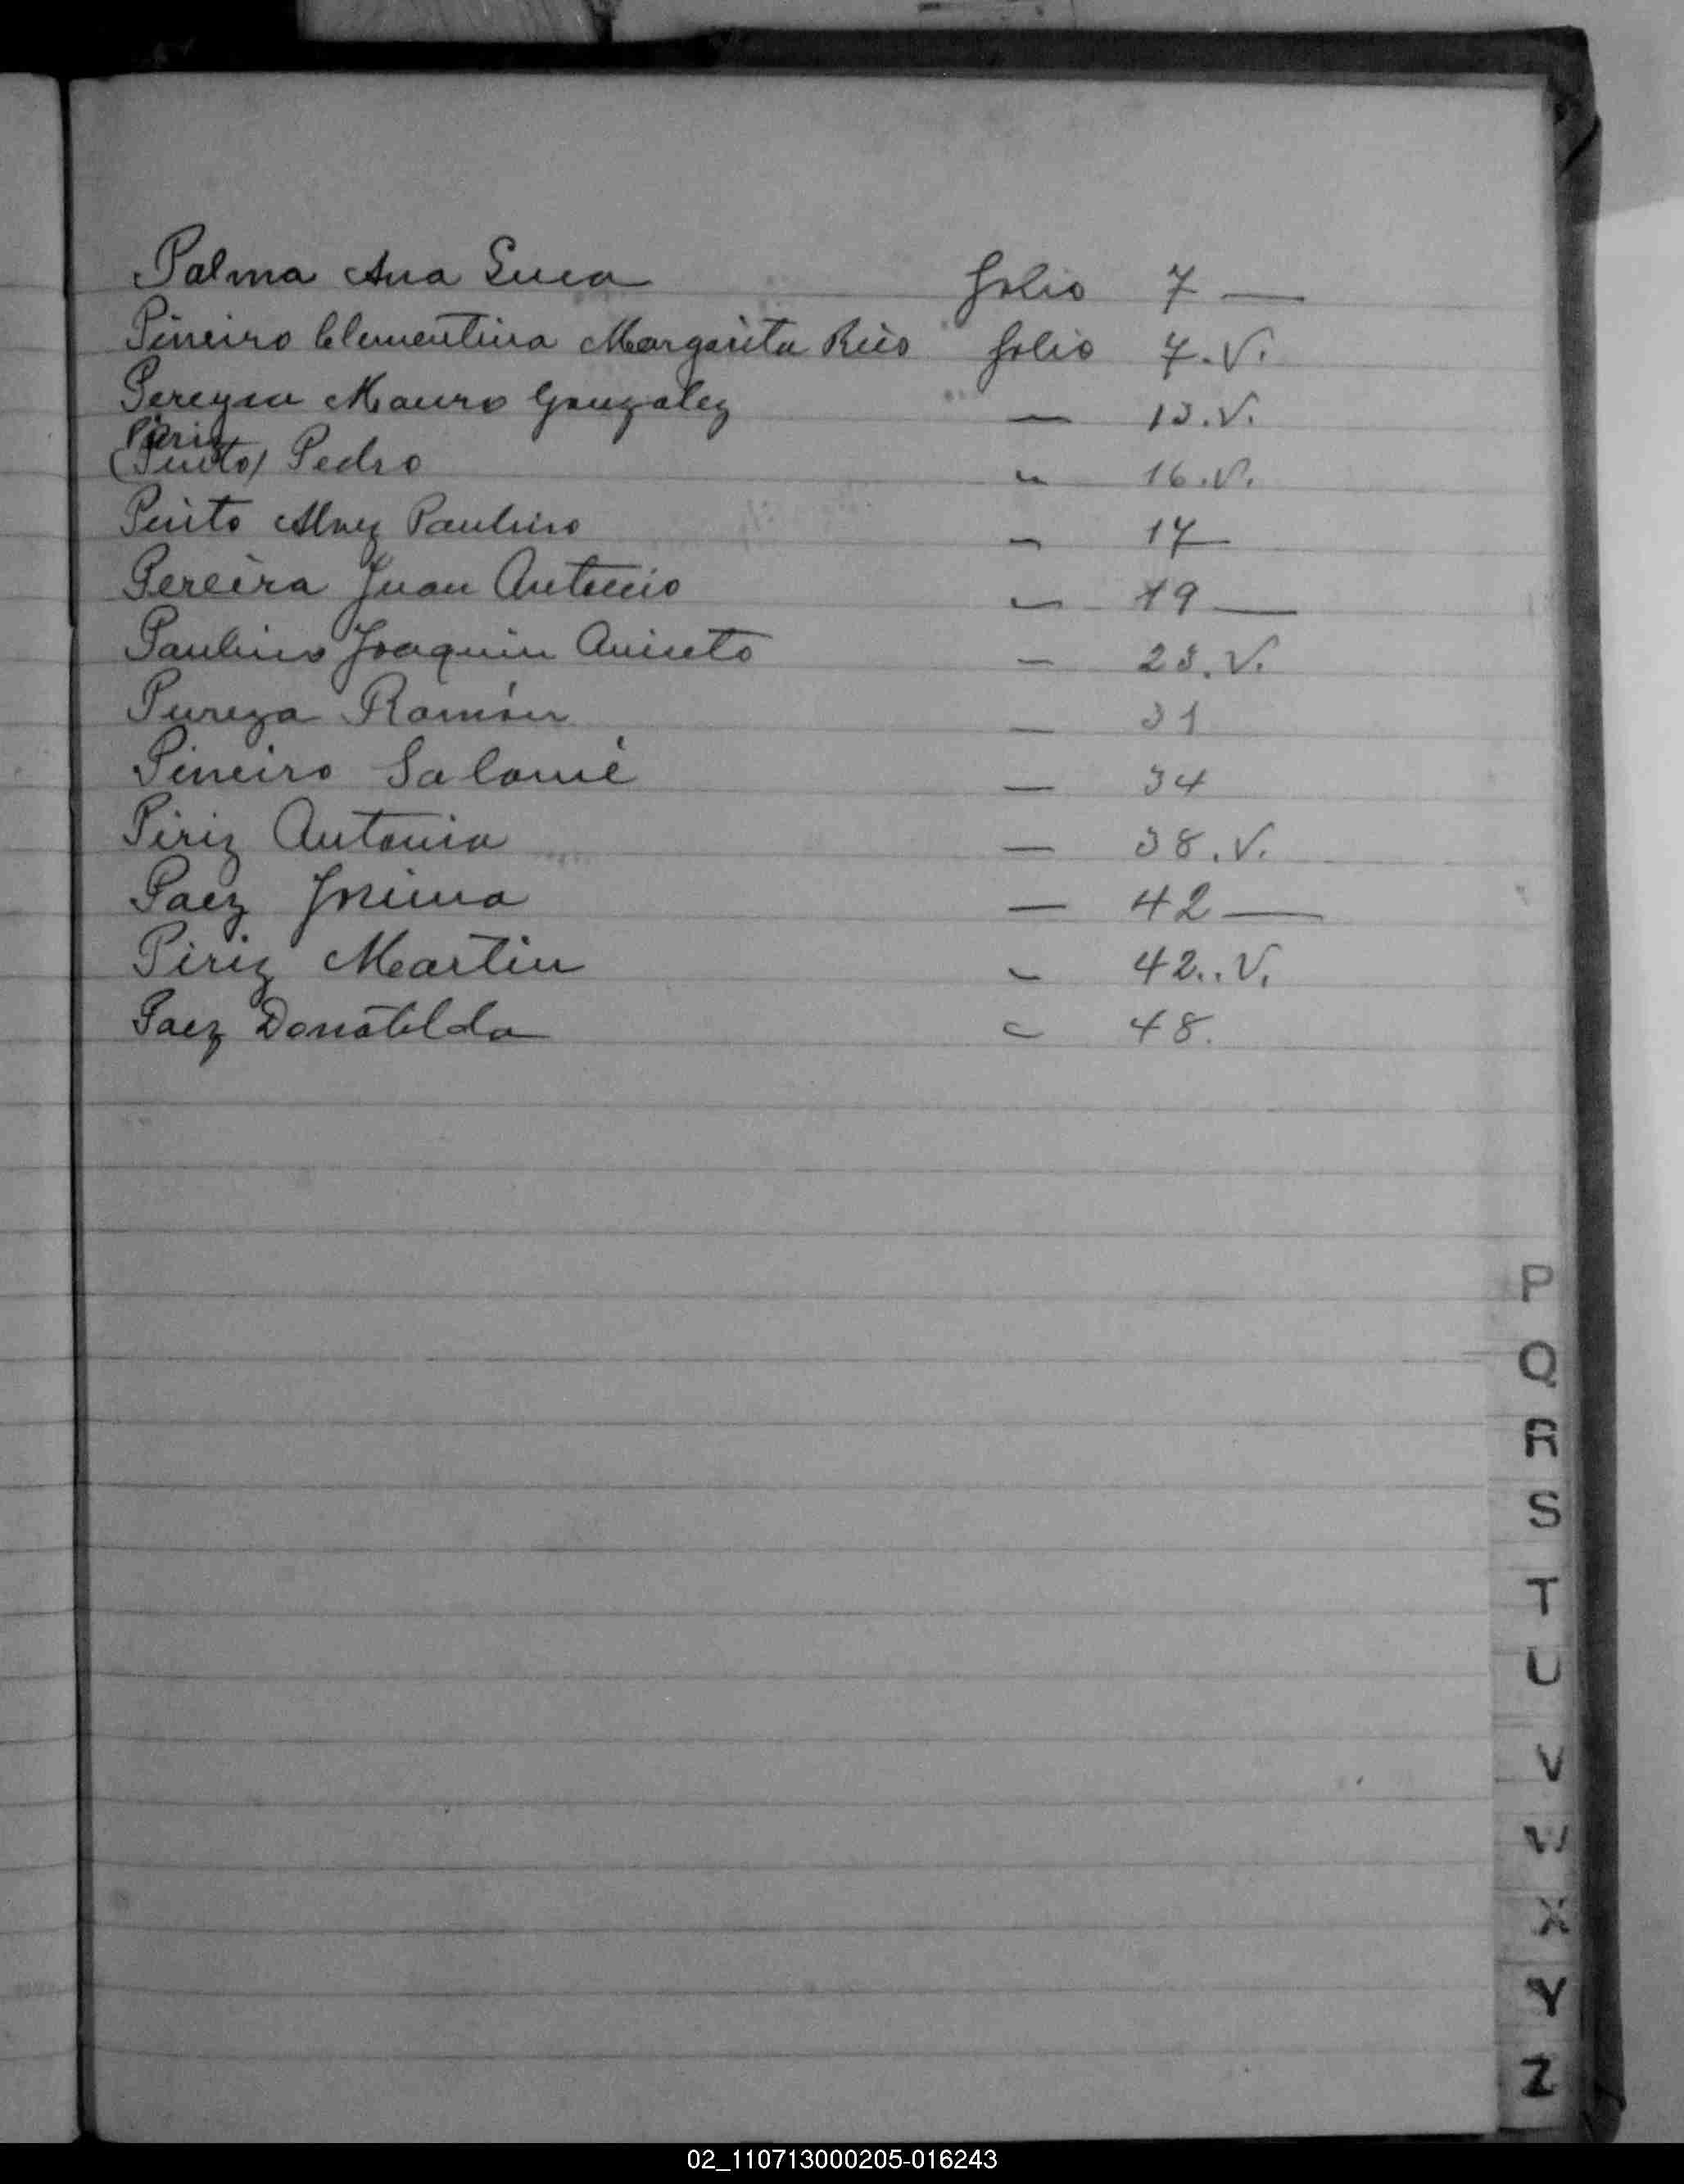 Palma Ana Luca folio 7 —
Pineiro Clementina Margarita Rios folio 7.V.
Pereyra Mauro Gonzalez — 13.V.
Piriz
(Pinto) Pedro " 16.V.
Pinto Alvez Paulino — 17
Pereira Juan Antonio — 19 —
Paulino Joaquin Aniceto — 23.V.
Pureza Ramón — 31
Pineiro Salomé — 34
Piriz Antonia — 38.V.
Paez — 42 —
Piriz Martin — 42..V.
Paez Donatilda — 48.
P
Q
R
S
T
U
V
W
X
Y
Z
02_110713000205-016243